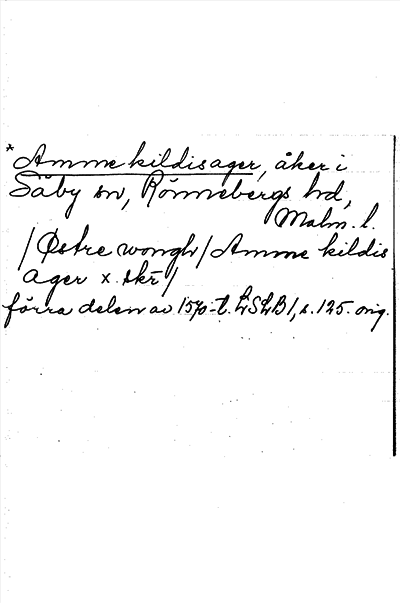 * Amme kildisager, åker i
Säby sn, Rönnebergs hd,
Malm. l.
/Østre wongh/ Amme kildis
ager x. skr/
förra delen av 1570-t. LSLB 1, s. 125. orig.